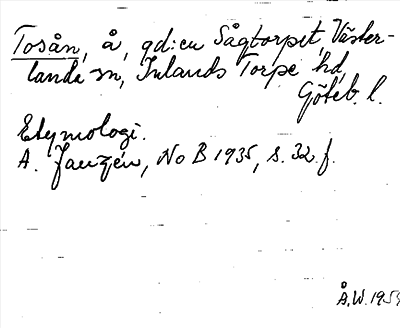 Tosån, å, gd:en Sågtorpet, Väster-
landa sn, Inlands Torpe hd,
Göteb. l.
Etymologi.
A. Janzén, NoB 1935, s. 32 f.
Å.W. 195